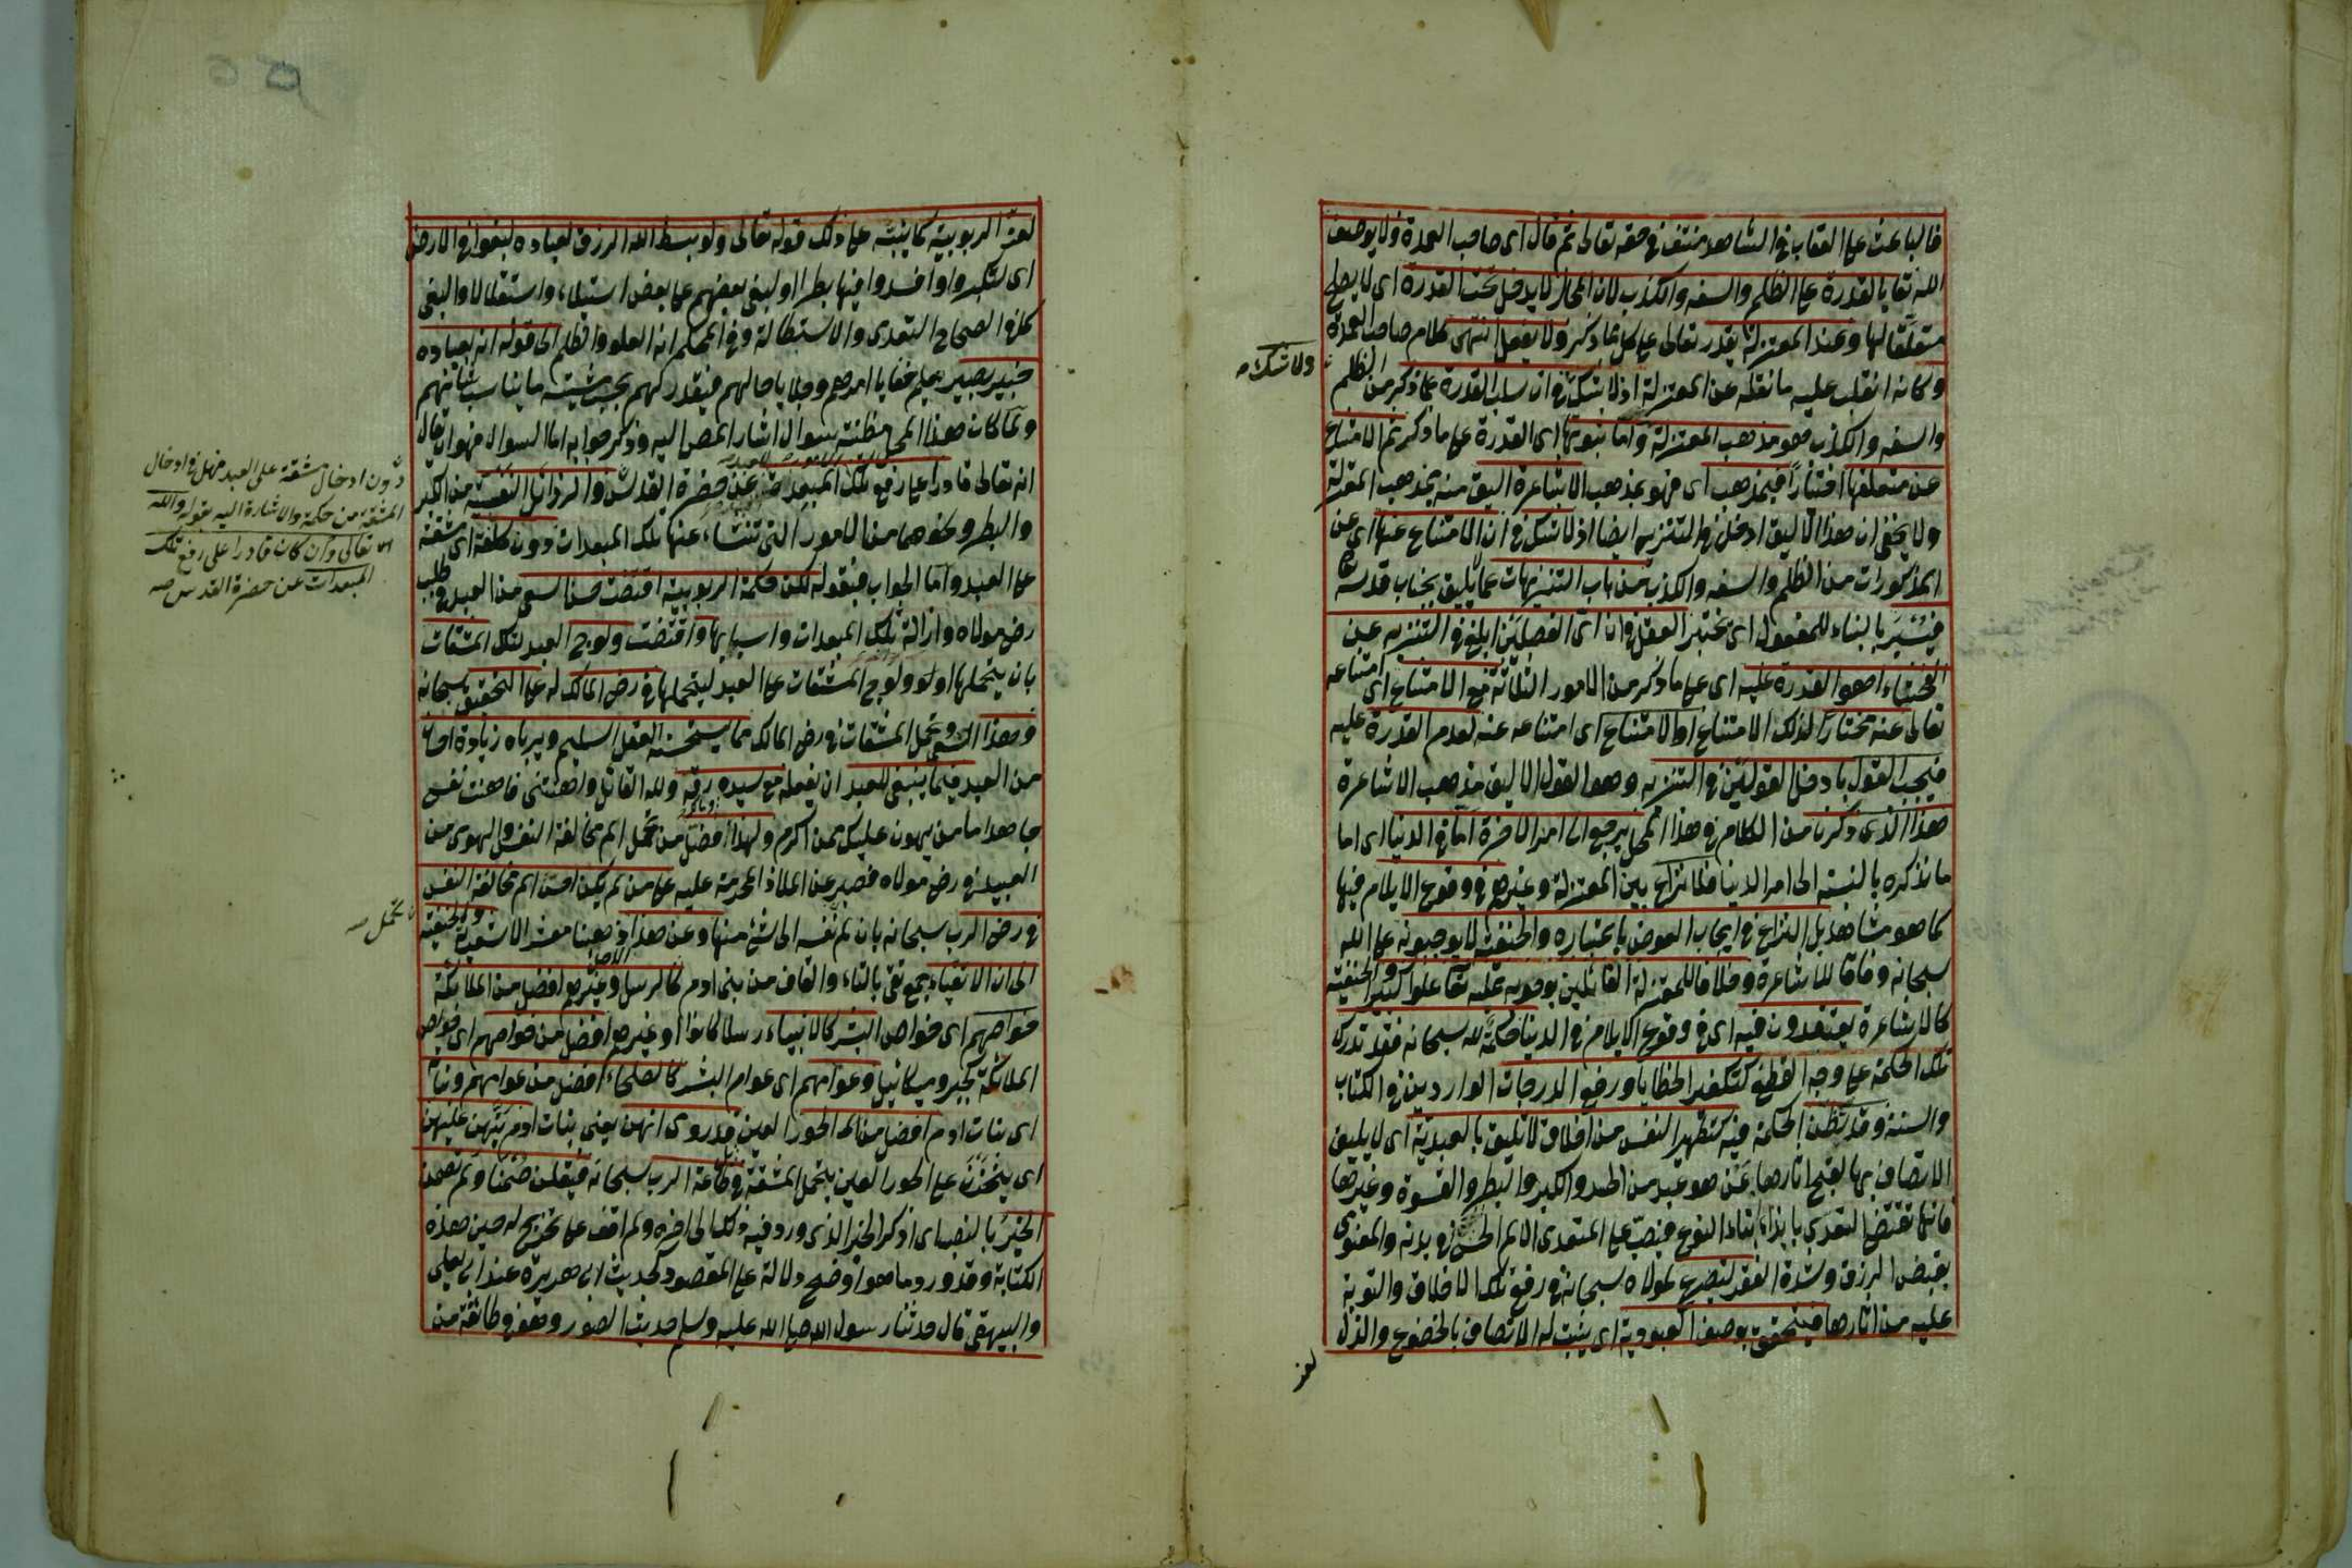 فالباعث على العقاب في الشاهد منتف في حقه تعالى ثم قال اى صاحب العمدة ولا يوصف
الله تعا بالقدرة على الظلم والسفه والكذب لان المحال لا يدخل تحت القدرة اى لا يصلح
متعلقا لها وعند المعتزلة يقدر تعالى على كل ما ذكر ولا يفعل انتهى كلام صاحب العمدة
ولا شك
وكانه انقلب عليه ما نقله عن المعتزلة اذ لا شك في ان سلب القدرة عما ذكر من الظلم
والسفه والكذب هو مذهب المعتزلة واما ثبوتها اى القدرة على ما ذكر ثم الامتناع
عن متعلقها اختيارا فبمذهب اى فهو بمذهب الاشاعرة اليق منه بمذهب المعتزلة
ولا يخفى ان هذا الاليق ادخل في التنزيه ايضا اذ لا شك في ان الامتناع عنها اى عن
المذكورات من الظلم والسفه والكذب من باب التنزيهات عما لا يليق بجناب قدسه
فيسبر بالبناء للمفعول اى يختبر العقل في ان اى الفصلين ابلغ في التنزيه عن
الفحشاء اهو القدرة عليه اى على ما ذكر من الامور الثلاثة مع الامتناع اى امتناعه
تعالى عنه مختارا لذلك الامتناع او الامتناع اى امتناعه عنه لعدم القدرة عليه
فيجب القول بادخل القولين في التنزيه وهو القول الاليق مذهب الاشاعرة
هذا الذى ذكرنا من الكلام في هذا المحل يرجع الى امر الاخرة اما في الدنيا اى اما
ما نذكره بالنسبة الى امر الدنيا فلا نزاع بين المعتزلة وغيرهم في وقوع الايلام فيها
كما هو مشاهد بل النزاع في ايجاب العوض باعتباره والحنفية لا يوجبونه على الله
سبحانه وفاقا للاشاعرة وخلافا للمعتزلة القائلين بوجوبه عليه تعا علوا كبيرا والحنفية
كالاشاعرة يعتقدون فيه اى في وقوع الايلام في الدنيا حكمة لله سبحانه فقد تدرك
تلك الحكمة على وجه القطع كتكفير الخطايا ورفع الدرجات الواردين في الكتاب
والسنة وقد تظن الحكمة فيه كتطهير النفس من اخلاق لا تليق بالعبدية اى لا يليق
الاتصاف بها لقبح اثارها عمن هو عبد من الحسد والكبر والبطر والقسوة وغيرها
فانها تقتضى التعدى بايذاء ابناء النوع فيصب على المتعدى الالم الحسى في بدنه والمعنوى
بقبض الرزق وشدة الفقر ليضرع لمولاه سبحانه في رفع تلك الاخلاق والتوبة
عليه من اثارها فيتحقق بوصف العبودية اى يثبت له الاتصاف بالخضوع والذل
لعز
لعزة الربوبية كما ينبئه على ذلك قوله تعالى ولو بسط الله الرزق لعباده لبغوا في الارض
اى لتكبروا وافسدوا فيها بطرا او لبغى بعضهم على بعض استيلاء واستعلاء والبغى
كما في الصحاح التعدى والاستطالة وفي المحكم انه العلو والظلم الى قوله انه بعباده
خبير بصير يعلم خفايا امرهم وجلايا حالهم فيقدر لهم بحسب مشيته ما يناسب شانهم
ولما كان هذا المحل مظنة سؤال اشار المص اليه وذكر جوابه اما السؤال فهو ان يقال
انه تعالى قادر على رفع تلك المبعدات عن حضرة القدس والرذائل النفسية من الكبر
والبطر ونحوهما من الامور التى تنشاء عنها تلك المبعدات دون كلفة اى مشقة
دون ادخال مشقة على العبد فهل في ادخال
المشقة من حكمة والاشارة اليه بقوله والله
تعالى وان كان قادرا على رفع تلك
المبعدات عن حضرة القدس صه
على العبد واما الجواب فبقوله لكن حكمة الربوبية اقتضت حسن السعى من العبد في طلب
رضى مولاه وازالة تلك المبعدات واسبابها واقتضت ولوج العبد لتلك المشقات
بان يتحملها اولو ولوج المشقات على العبد ليتحملها في رضى المالك له على التحقيق سبحانه
وهذا السعى وتحمل المشقات في رضى المالك مما يستحسنه العقل السليم ويراه زيادة احسان
من العبد فيما ينبغى للعبد ان يفعله مع سيده رقه ولله القائل واهنتنى فاهنت نفسى
جاهدا ما من يهون عليك ممن اكرم ولهذا فضل من تحمل الم مخالفة النفس والهوى من
العبيد في رضى مولاه فصبر عن الملاذ المحرمة عليه على من لم يكن احسن الم مخالفة النفس
تحمل صه
في رضى الرب سبحانه بان لم نفسه الى شئ منها وعن هذا ذهبنا معشر الاشعرية والحنفية
الى ان الاتقياء جمع تقى بالتاء والقاف من بنى ادم كالرسل وغيرهم افضل من الملائكة
خواصهم اى خواص البشر كالانبياء رسلا كانوا او غيرهم افضل من خواصهم اى خواص
الملائكة كجبر وميكائيل وعوامهم اى عوام البشر كالصلحاء افضل من عوامهم وبنات
اى بنات ادم افضل من الحور العين فقد روى انهن يعنى بنات ادم يتهن عليهن
اى يفتخرن على الحور العين بتحمل المشقة في طاعة الرب سبحانه فيقلن صمنا ولم تصمن
الخبر بالنصب اى اذكر الخبر الذى ورد فيه ذلك الى اخره ولم اقف على تخريج له حين هذه
الكتابة وقد ورد ما هو اوضح دلالة على المقصود كحديث ابى هريرة عند ابى يعلى
والبيهقى قال حدثنا رسول الله صلى الله عليه وسلم حديث الصور وهو في طائفة من